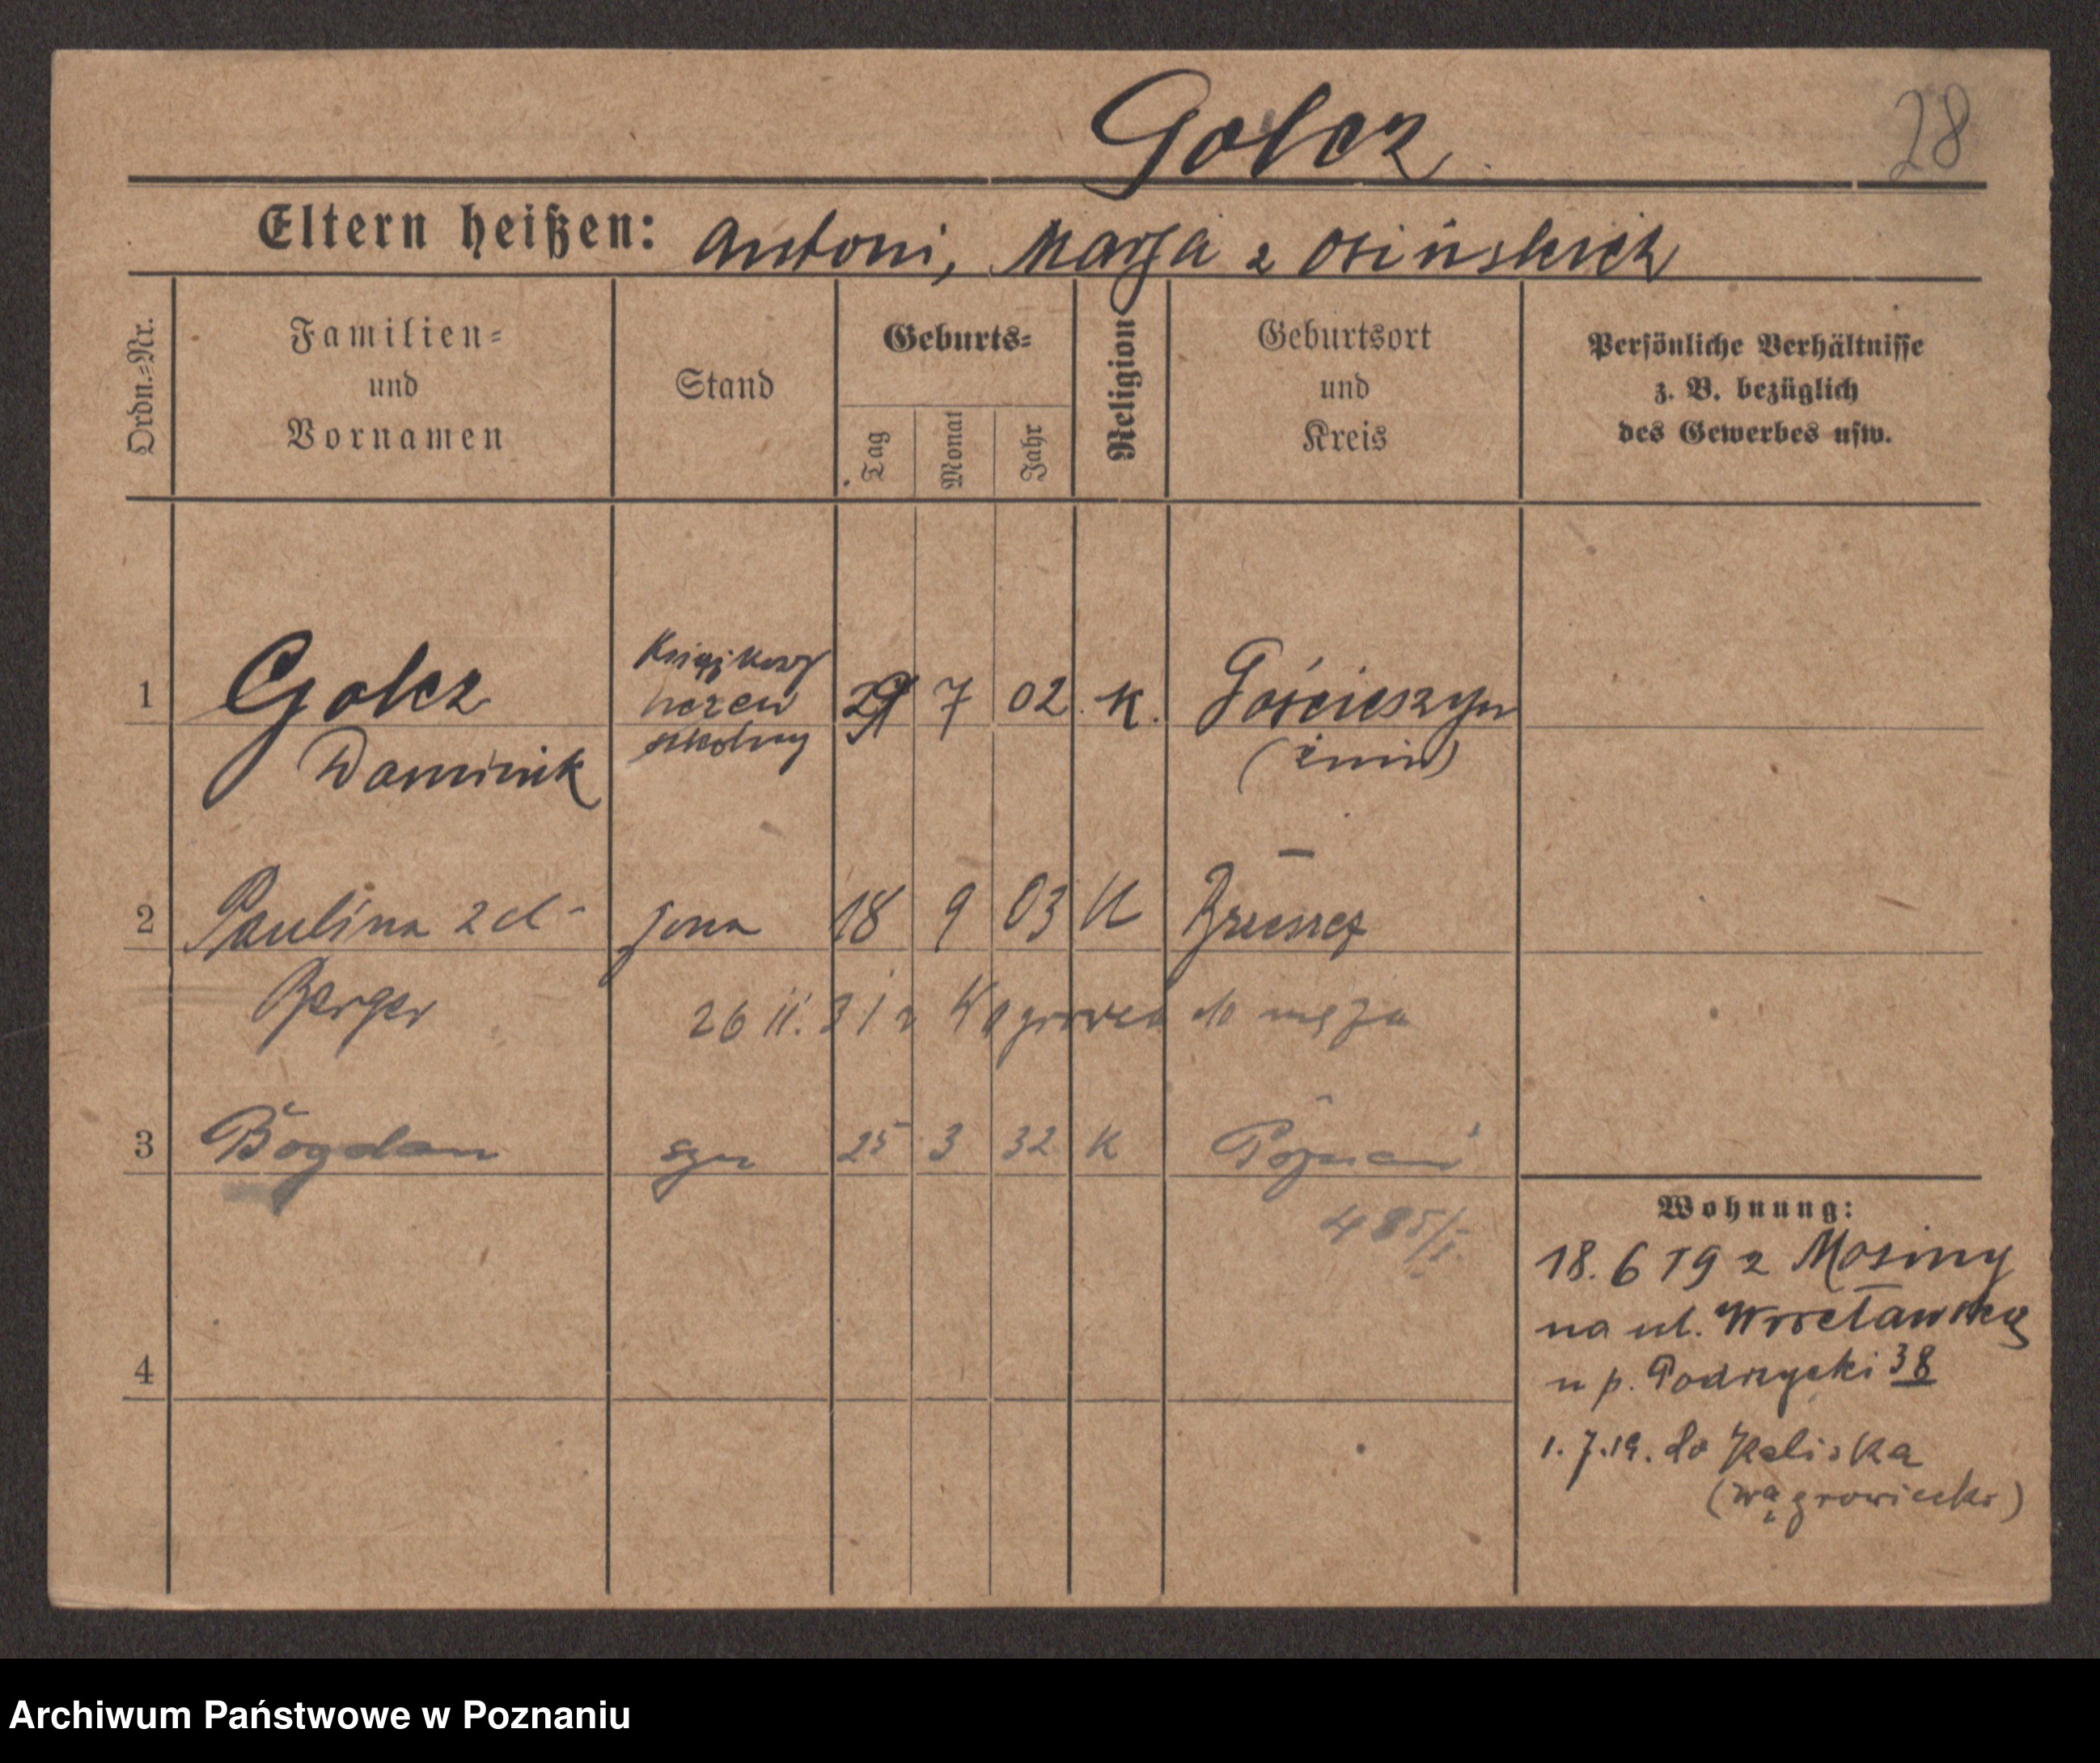 Golcz
28
Eltern heißen: Antoni, Marja z Osińskich
Ordn.-Nr.
Familien-
und
Vornamen
Stand
Geburts-
Tag
Monat
Jahr
Religion
Geburtsort
und
Kreis
Persönliche Verhältnisse
z. B. bezüglich
des Gewerbes usw.
1 Golcz 7 02 K. Gościeszyn
Dominik
książkowy
uczeń
szkolny
(Żnin)
2 Paulina z d- żona 18 9 03 K
Berger 26 11. 31 z Wągrowca do męża
3 Bogdan syn 25 3 32 K Poznań
485/I.
Wohnung:
18. 6 19 z Mosiny
na ul. Wrocławską
u p. Podrzycki 38
4
1. 7. 19. do Kaliska
(Wągrowiecki)
Archiwum Państwowe w Poznaniu